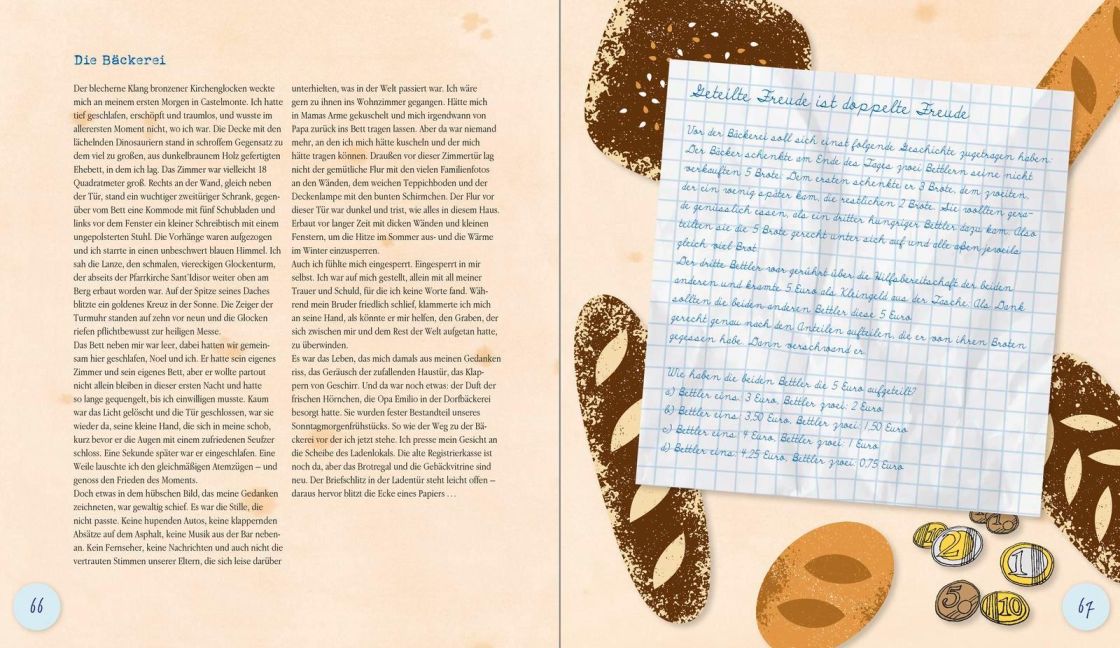 Die Bäckerei
Der blecherne Klang bronzener Kirchenglocken weckte
mich an meinem ersten Morgen in Castelmonte. Ich hatte
tief geschlafen, erschöpft und traumlos, und wusste im
allerersten Moment nicht, wo ich war. Die Decke mit den
lächelnden Dinosauriern stand in schroffem Gegensatz zu
dem viel zu großen, aus dunkelbraunem Holz gefertigten
Ehebett, in dem ich lag. Das Zimmer war vielleicht 18
Quadratmeter groß. Rechts an der Wand, gleich neben
der Tür, stand ein wuchtiger zweitüriger Schrank, gegen-
über vom Bett eine Kommode mit fünf Schubladen und
links vor dem Fenster ein kleiner Schreibtisch mit einem
ungepolsterten Stuhl. Die Vorhänge waren aufgezogen
und ich starrte in einen unbeschwert blauen Himmel. Ich
sah die Lanze, den schmalen, viereckigen Glockenturm,
der abseits der Pfarrkirche Sant'Isidor weiter oben am
Berg erbaut worden war. Auf der Spitze seines Daches
blitzte ein goldenes Kreuz in der Sonne. Die Zeiger der
Turmuhr standen auf zehn vor neun und die Glocken
riefen pflichtbewusst zur heiligen Messe.
Das Bett neben mir war leer, dabei hatten wir gemein-
sam hier geschlafen, Noel und ich. Er hatte sein eigenes
Zimmer und sein eigenes Bett, aber er wollte partout
nicht allein bleiben in dieser ersten Nacht und hatte
so lange gequengelt, bis ich einwilligen musste. Kaum
war das Licht gelöscht und die Tür geschlossen, war sie
wieder da, seine kleine Hand, die sich in meine schob,
kurz bevor er die Augen mit einem zufriedenen Seufzer
schloss. Eine Sekunde später war er eingeschlafen. Eine
Weile lauschte ich den gleichmäßigen Atemzügen – und
genoss den Frieden des Moments.
Doch etwas in dem hübschen Bild, das meine Gedanken
zeichneten, war gewaltig schief. Es war die Stille, die
nicht passte. Keine hupenden Autos, keine klappernden
Absätze auf dem Asphalt, keine Musik aus der Bar neben-
an. Kein Fernseher, keine Nachrichten und auch nicht die
vertrauten Stimmen unserer Eltern, die sich leise darüber
unterhielten, was in der Welt passiert war. Ich wäre
gern zu ihnen ins Wohnzimmer gegangen. Hätte mich
in Mamas Arme gekuschelt und mich irgendwann von
Papa zurück ins Bett tragen lassen. Aber da war niemand
mehr, an den ich mich hätte kuscheln und der mich
hätte tragen können. Draußen vor dieser Zimmertür lag
nicht der gemütliche Flur mit den vielen Familienfotos
an den Wänden, dem weichen Teppichboden und der
Deckenlampe mit den bunten Schirmchen. Der Flur vor
dieser Tür war dunkel und trist, wie alles in diesem Haus.
Erbaut vor langer Zeit mit dicken Wänden und kleinen
Fenstern, um die Hitze im Sommer aus- und die Wärme
im Winter einzusperren.
Auch ich fühlte mich eingesperrt. Eingesperrt in mir
selbst. Ich war auf mich gestellt, allein mit all meiner
Trauer und Schuld, für die ich keine Worte fand. Wäh-
rend mein Bruder friedlich schlief, klammerte ich mich
an seine Hand, als könnte er mir helfen, den Graben, der
sich zwischen mir und dem Rest der Welt aufgetan hatte,
zu überwinden.
Es war das Leben, das mich damals aus meinen Gedanken
riss, das Geräusch der zufallenden Haustür, das Klap-
pern von Geschirr. Und da war noch etwas: der Duft der
frischen Hörnchen, die Opa Emilio in der Dorfbäckerei
besorgt hatte. Sie wurden fester Bestandteil unseres
Sonntagmorgenfrühstücks. So wie der Weg zu der Bä-
ckerei vor der ich jetzt stehe. Ich presse mein Gesicht an
die Scheibe des Ladenlokals. Die alte Registrierkasse ist
noch da, aber das Brotregal und die Gebäckvitrine sind
neu. Der Briefschlitz in der Ladentür steht leicht offen –
daraus hervor blitzt die Ecke eines Papiers ...
66
Geteilte Freude ist doppelte Freude
Vor der Bäckerei soll sich einst folgende Geschichte zugetragen haben:
Der Bäcker schenkte am Ende des Tages zwei Bettlern seine nicht
verkauften 5 Brote: Dem ersten schenkte er 3 Brote, dem zweiten,
der ein wenig später kam, die restlichen 2 Brote. Sie wollten gera-
de genüsslich essen, als ein dritter hungriger Bettler dazu kam. Also
teilten sie die 5 Brote gerecht unter sich auf und alle aßen jeweils
gleich viel Brot.
Der dritte Bettler war gerührt über die Hilfsbereitschaft der beiden
anderen und kramte 5 Euro als Kleingeld aus der Tasche: Als Dank
sollten die beiden anderen Bettler diese 5 Euro
gerecht genau nach den Anteilen aufteilen, die er von ihren Broten
gegessen habe. Dann verschwand er.
Wie haben die beiden Bettler die 5 Euro aufgeteilt?
a) Bettler eins: 3 Euro, Bettler zwei: 2 Euro
b) Bettler eins: 3,50 Euro, Bettler zwei: 1,50 Euro
c) Bettler eins: 4 Euro, Bettler zwei: 1 Euro
d) Bettler eins: 4,25 Euro, Bettler zwei: 0,75 Euro
10
2
1
50
10
67